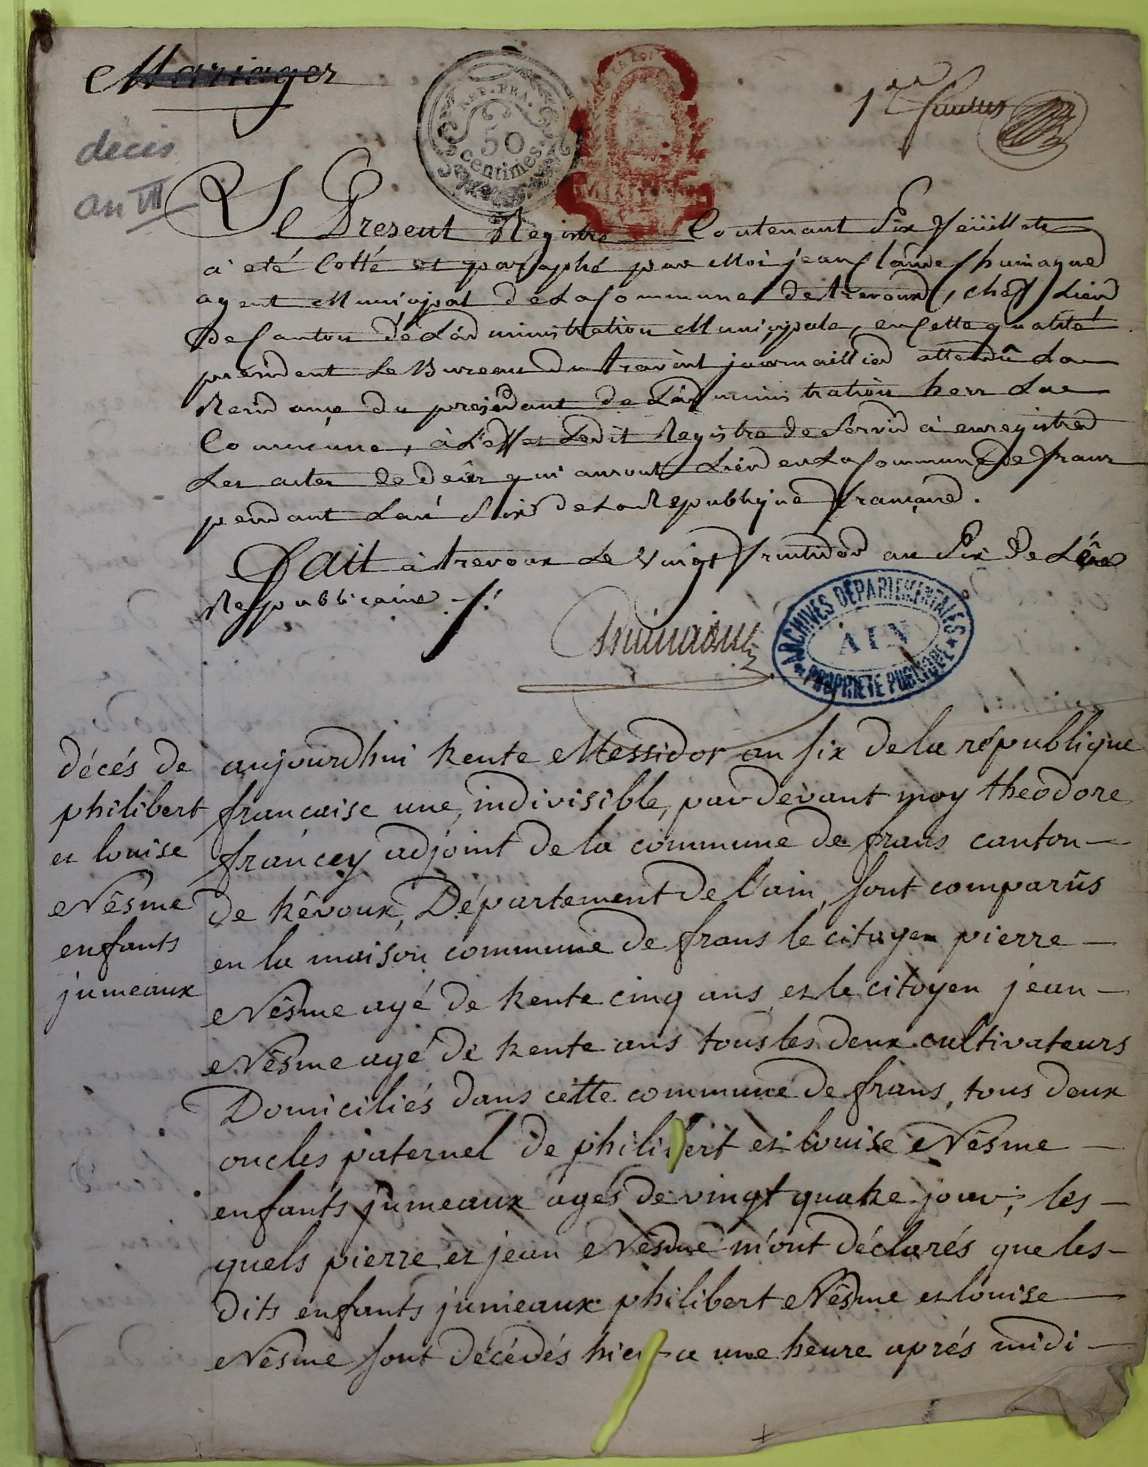 Mariages
décès
an VII
REP. FRA.
50
centimes
1er feuillet
Le Present Registre Contenant Six feüillets
a eté Cotté et paraphé par Moi jean Claude Chuinague
agent Municipal de La Commune de trevoux, chef Lieu
de Canton de L'administration Municipale, en Cette qualité
président le Bureau du travail journaillier attendû La
du président de L'administration hors La
Commune, à L'effet Ledit Registre de Servir à enregistrer
Les actes de décès qui auront Lieu en La Commune de frans
pendant L'an Six de La Republique française.
Fait à trevoux Le Vingt fructidor an Six de L'êre
Republicaine ./.
ARCHIVES DÉPARTEMENTALES
AIN
PROPRIÉTÉ PUBLIQUE
décés de
philibert
et louise
Nêsme
enfants
jumeaux
aujourdhui trente Messidor an six de la république
française une, indivisible, par devant moy théodore
francey adjoint de la commune de frans canton
de trêvoux, Département de l'ain, sont comparûs
en la maison commune de frans le citoyen pierre
Nêsme agé de trente cinq ans et le citoyen jean
Nêsme agé de trente ans tous les deux cultivateurs
Domiciliés dans cette commune de frans, tous deux
oncles paternel de philibert et louise Nêsme
enfants jumeaux agés de vingt quatre jour; les
quels pierre et jean Nêsme m'ont déclarés que les
dits enfants jumeaux philibert Nêsme et louise
Nêsme sont décédés hier a une heure aprés midi